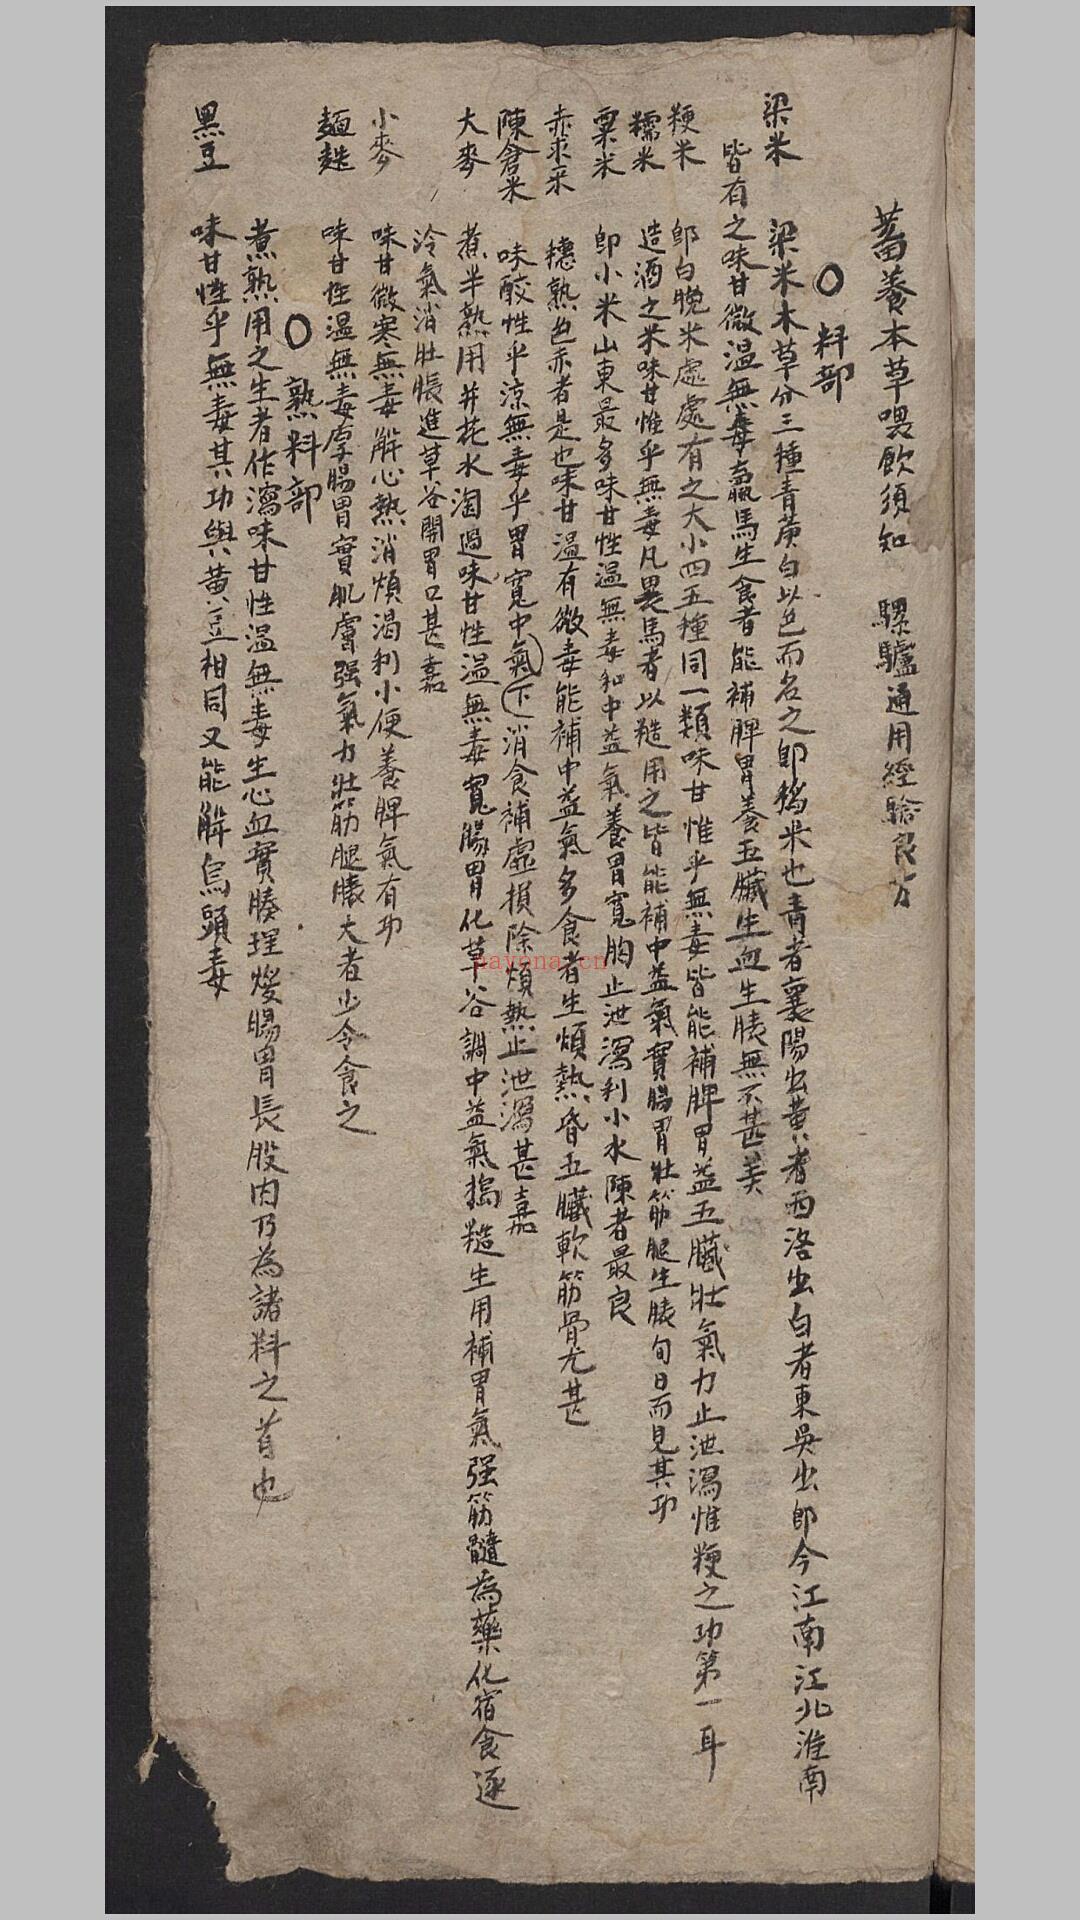 蓄養本草喂飲須知　騾驢通用經驗良方
○料部
梁米　梁米木草分三種青黄白以色而名之即稻米也青者襄陽出黄者西洛出白者東吳出即今江南江北淮南
皆有之味甘微温無毒羸馬生食者能補脾胃養五臟生血生膘無不甚美
粳米　即白晚米處處有之大小四五種同一類味甘惟乎無毒皆能補脾胃益五臟壯氣力止泄瀉惟粳之功第一耳
糯米　造酒之米味甘惟乎無毒凡畏馬者以糙用之皆能補中益氣實腸胃壯筋腿生膘旬日而見其功
粟米　即小米山東最多味甘性温無毒和中益氣養胃寬胸止泄瀉利小水陳者最良
赤米　穗熟色赤者是也味甘温有微毒能補中益氣多食者生煩熱昏五臟軟筋骨尤甚
陳倉米　味酸性乎涼無毒乎胃寬中氣下消食補虛損除煩熱止泄瀉甚嘉
大麥　煮半熟用井花水淘過味甘性温無毒寬腸胃化草谷調中益氣搗糙生用補胃氣强筋髓為藥化宿食逐
冷氣消肚脹進草谷開胃口甚嘉
小麥　味甘微寒無毒解心熱消煩渴利小便養脾氣有功
麵麩　味甘性温無毒厚腸胃實肌膚强氣力壯筋腿膘大者少令食之
○熟料部
煮熟用之生者作瀉味甘性温無毒生心血實腠理煖腸胃長股肉乃為諸料之首也
黑豆　味甘性乎無毒其功與黄豆相同又能解烏頭毒
nayona.cn